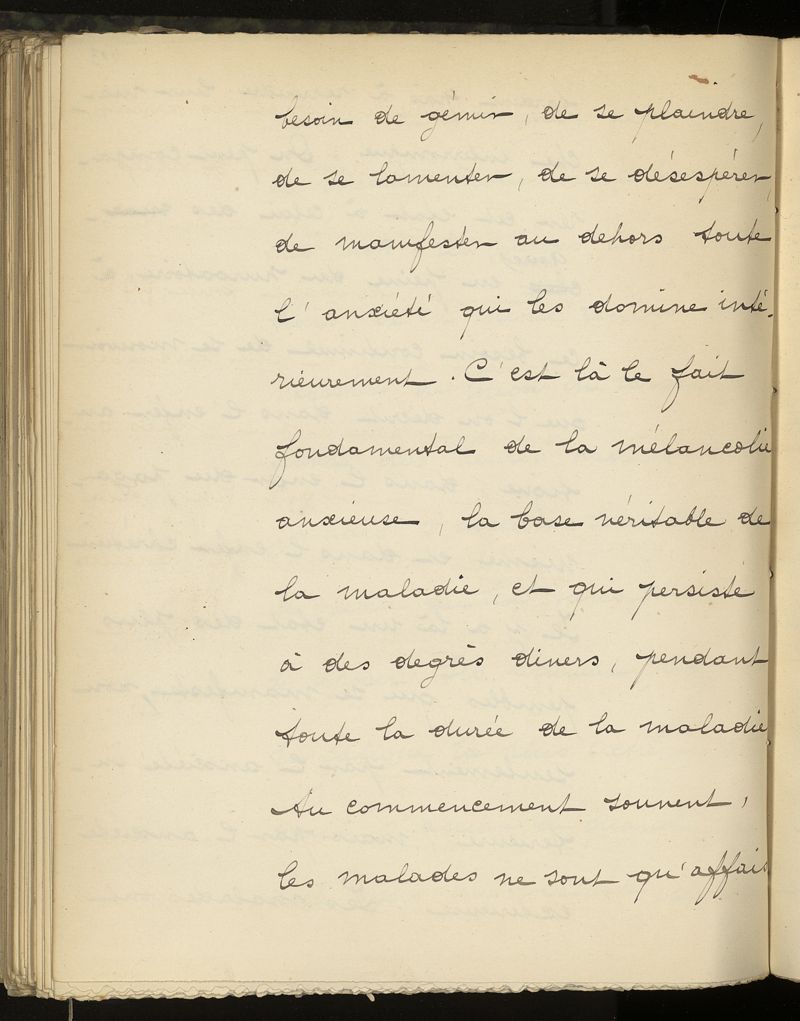 besoin de gémir, de se plaindre,
de se lamenter, de se désespérer,
de manifester au dehors toute
l'anxiété qui les domine inté-
rieurement. C'est là le fait
fondamental de la mélancolie
anxieuse, la base véritable de
la maladie, et qui persiste
à des degrés divers, pendant
toute la durée de la maladie.
Au commencement souvent,
les malades ne sont qu'affais